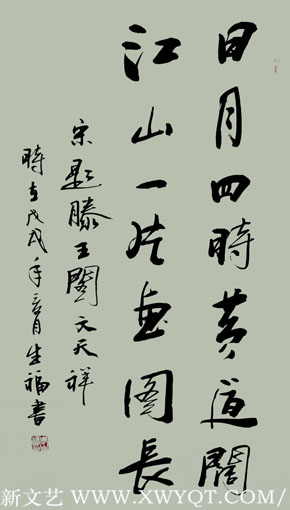 日月四時黄道闊
江山一片画图長
宋题滕王閣文天祥
時在戊戌年月生福書
新文艺 WWW.XWYQT.COM/